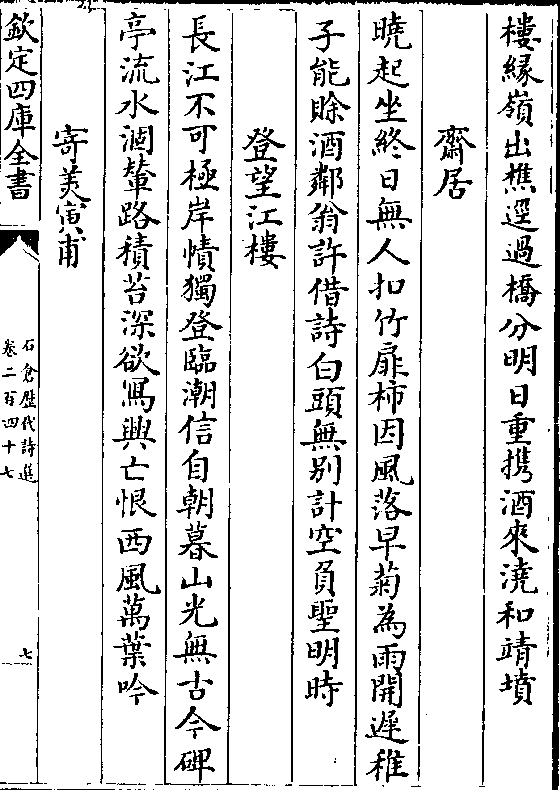 樓緣嶺出樵逕過橋分明日重携酒來澆和靖墳
齋居
曉起坐終日無人扣竹扉柿因風落早菊為雨開遲稚
子能賒酒鄰翁許借詩白頭無别計空負聖明時
登望江樓
長江不可極岸幘獨登臨潮信自朝暮山光無古今碑
亭流水涸輦路積苔深欲寫興亡恨西風萬葉吟
寄姜寅甫
欽定四庫全書
石倉歷代詩選
卷二百四十七
七